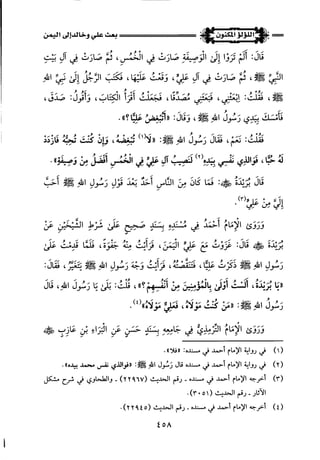 اللؤلؤ المكنون
بعث علي وخالد إلى اليمن
قَالَ: أَلَمْ تَرَوْا إِلَى الْوَصِيفَةِ صَارَتْ فِي الْخُمُسِ، ثُمَّ صَارَتْ فِي آلِ بَيْتِ
النَّبِيِّ ﷺ، ثُمَّ صَارَتْ فِي آلِ عَلِيٍّ، وَقَعْتُ عَلَيْهَا، فَكَتَبَ الرَّجُلُ إِلَى نَبِيِّ اللهِ
ﷺ، فَقُلْتُ: ابْعَثْنِي، فَبَعَثَنِي مُصَدِّقًا، فَجَعَلْتُ أَقْرَأُ الْكِتَابَ، وَأَقُولُ: صَدَقَ،
فَأَمْسَكَ يَدِي رَسُولُ اللهِ ﷺ، وَقَالَ: «أَتُبْغِضُ عَلِيًّا؟»
فَقُلْتُ: نَعَمْ، فَقَالَ رَسُولُ اللهِ ﷺ: «لَا(١) تُبْغِضْهُ، وَإِنْ كُنْتَ تُحِبُّهُ فَازْدَدْ
لَهُ حُبًّا، فَوَالَّذِي نَفْسِي بِيَدِهِ(٢) لَنَصِيبُ آلِ عَلِيٍّ فِي الْخُمُسِ أَفْضَلُ مِنْ وَصِيفَةٍ».
قَالَ بُرَيْدَةُ ﷺ: فَمَا كَانَ مِنَ النَّاسِ أَحَدٌ بَعْدَ قَوْلِ رَسُولِ اللهِ ﷺ أَحَبَّ
إِلَيَّ مِنْ عَلِيٍّ(٣).
وَرَوَى الْإِمَامُ أَحْمَدُ فِي مُسْنَدِهِ بِسَنَدٍ صَحِيحٍ عَلَى شَرْطِ الشَّيْخَيْنِ عَنْ
بُرَيْدَةَ ﷺ قَالَ: غَزَوْتُ مَعَ عَلِيٍّ الْيَمَنَ، فَرَأَيْتُ مِنْهُ جَفْوَةً، فَلَمَّا قَدِمْتُ عَلَى
رَسُولِ اللهِ ﷺ ذَكَرْتُ عَلِيًّا، فَتَنَقَّصْتُهُ، فَرَأَيْتُ وَجْهَ رَسُولِ اللهِ ﷺ يَتَغَيَّرُ، فَقَالَ:
«يَا بُرَيْدَةُ، أَلَسْتُ أَوْلَى بِالْمُؤْمِنِينَ مِنْ أَنْفُسِهِمْ؟»، قُلْتُ: بَلَى يَا رَسُولَ اللهِ، قَالَ
رَسُولُ اللهِ ﷺ: «مَنْ كُنْتُ مَوْلَاهُ، فَعَلِيٌّ مَوْلَاهُ»(٤).
وَرَوَى الْإِمَامُ التِّرْمِذِيُّ فِي جَامِعِهِ بِسَنَدٍ حَسَنٍ عَنِ الْبَرَاءِ بْنِ عَازِبٍ ﷺ
(١) في رواية الإمام أحمد في مسنده: «فلا».
(٢) في رواية الإمام أحمد في مسنده قال رسول الله ﷺ: «فوالذي نفس محمد بيده».
(٣) أخرجه الإمام أحمد في مسنده - رقم الحديث (٢٢٩٦٧) - والطحاوي في شرح مشكل
الآثار - رقم الحديث (٣٠٥١).
(٤) أخرجه الإمام أحمد في مسنده - رقم الحديث (٢٢٩٤٥).
٤٥٨